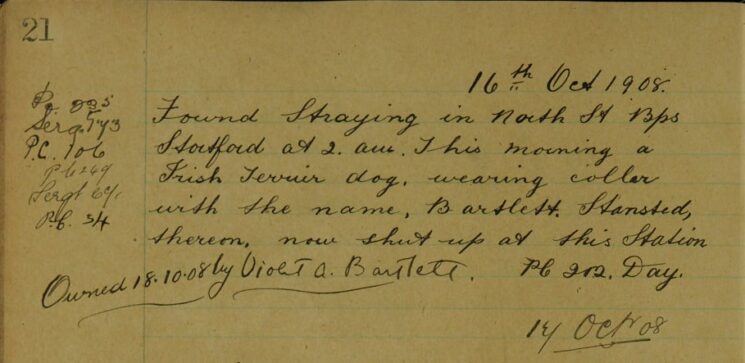 21
16th Oct 1908.
Found Straying in North St Bps
Stortford at 2. am. This morning a
Irish Terrier dog. wearing coller
with the name, Bartlett. Stansted,
thereon, now shut up at this Station
PC 202. Day.
Sergt 73
P.C. 106
Pc 249
Sergt
P.C. 34
Owned 18.10.08 by Violet A. Bartlett.
Octr 08